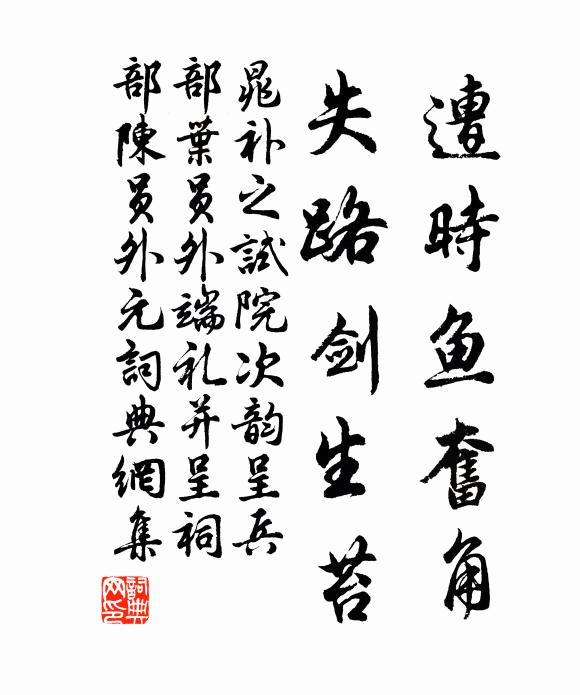 遭時鱼奮角
失路剑生苔
晁补之試院次韵呈兵
部葉员外端礼并呈祠
部陳员外元詞典網集
詞典
网印